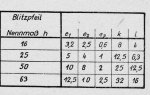 Blitzpfeil
Nennmaß h e₁ e₂ a₂ k l
16 3,2 2,5 0,6 8 4
25 5 4 1 12,5 6,3
50 10 8 2 25 12,5
63 12,5 10 2,5 32 16